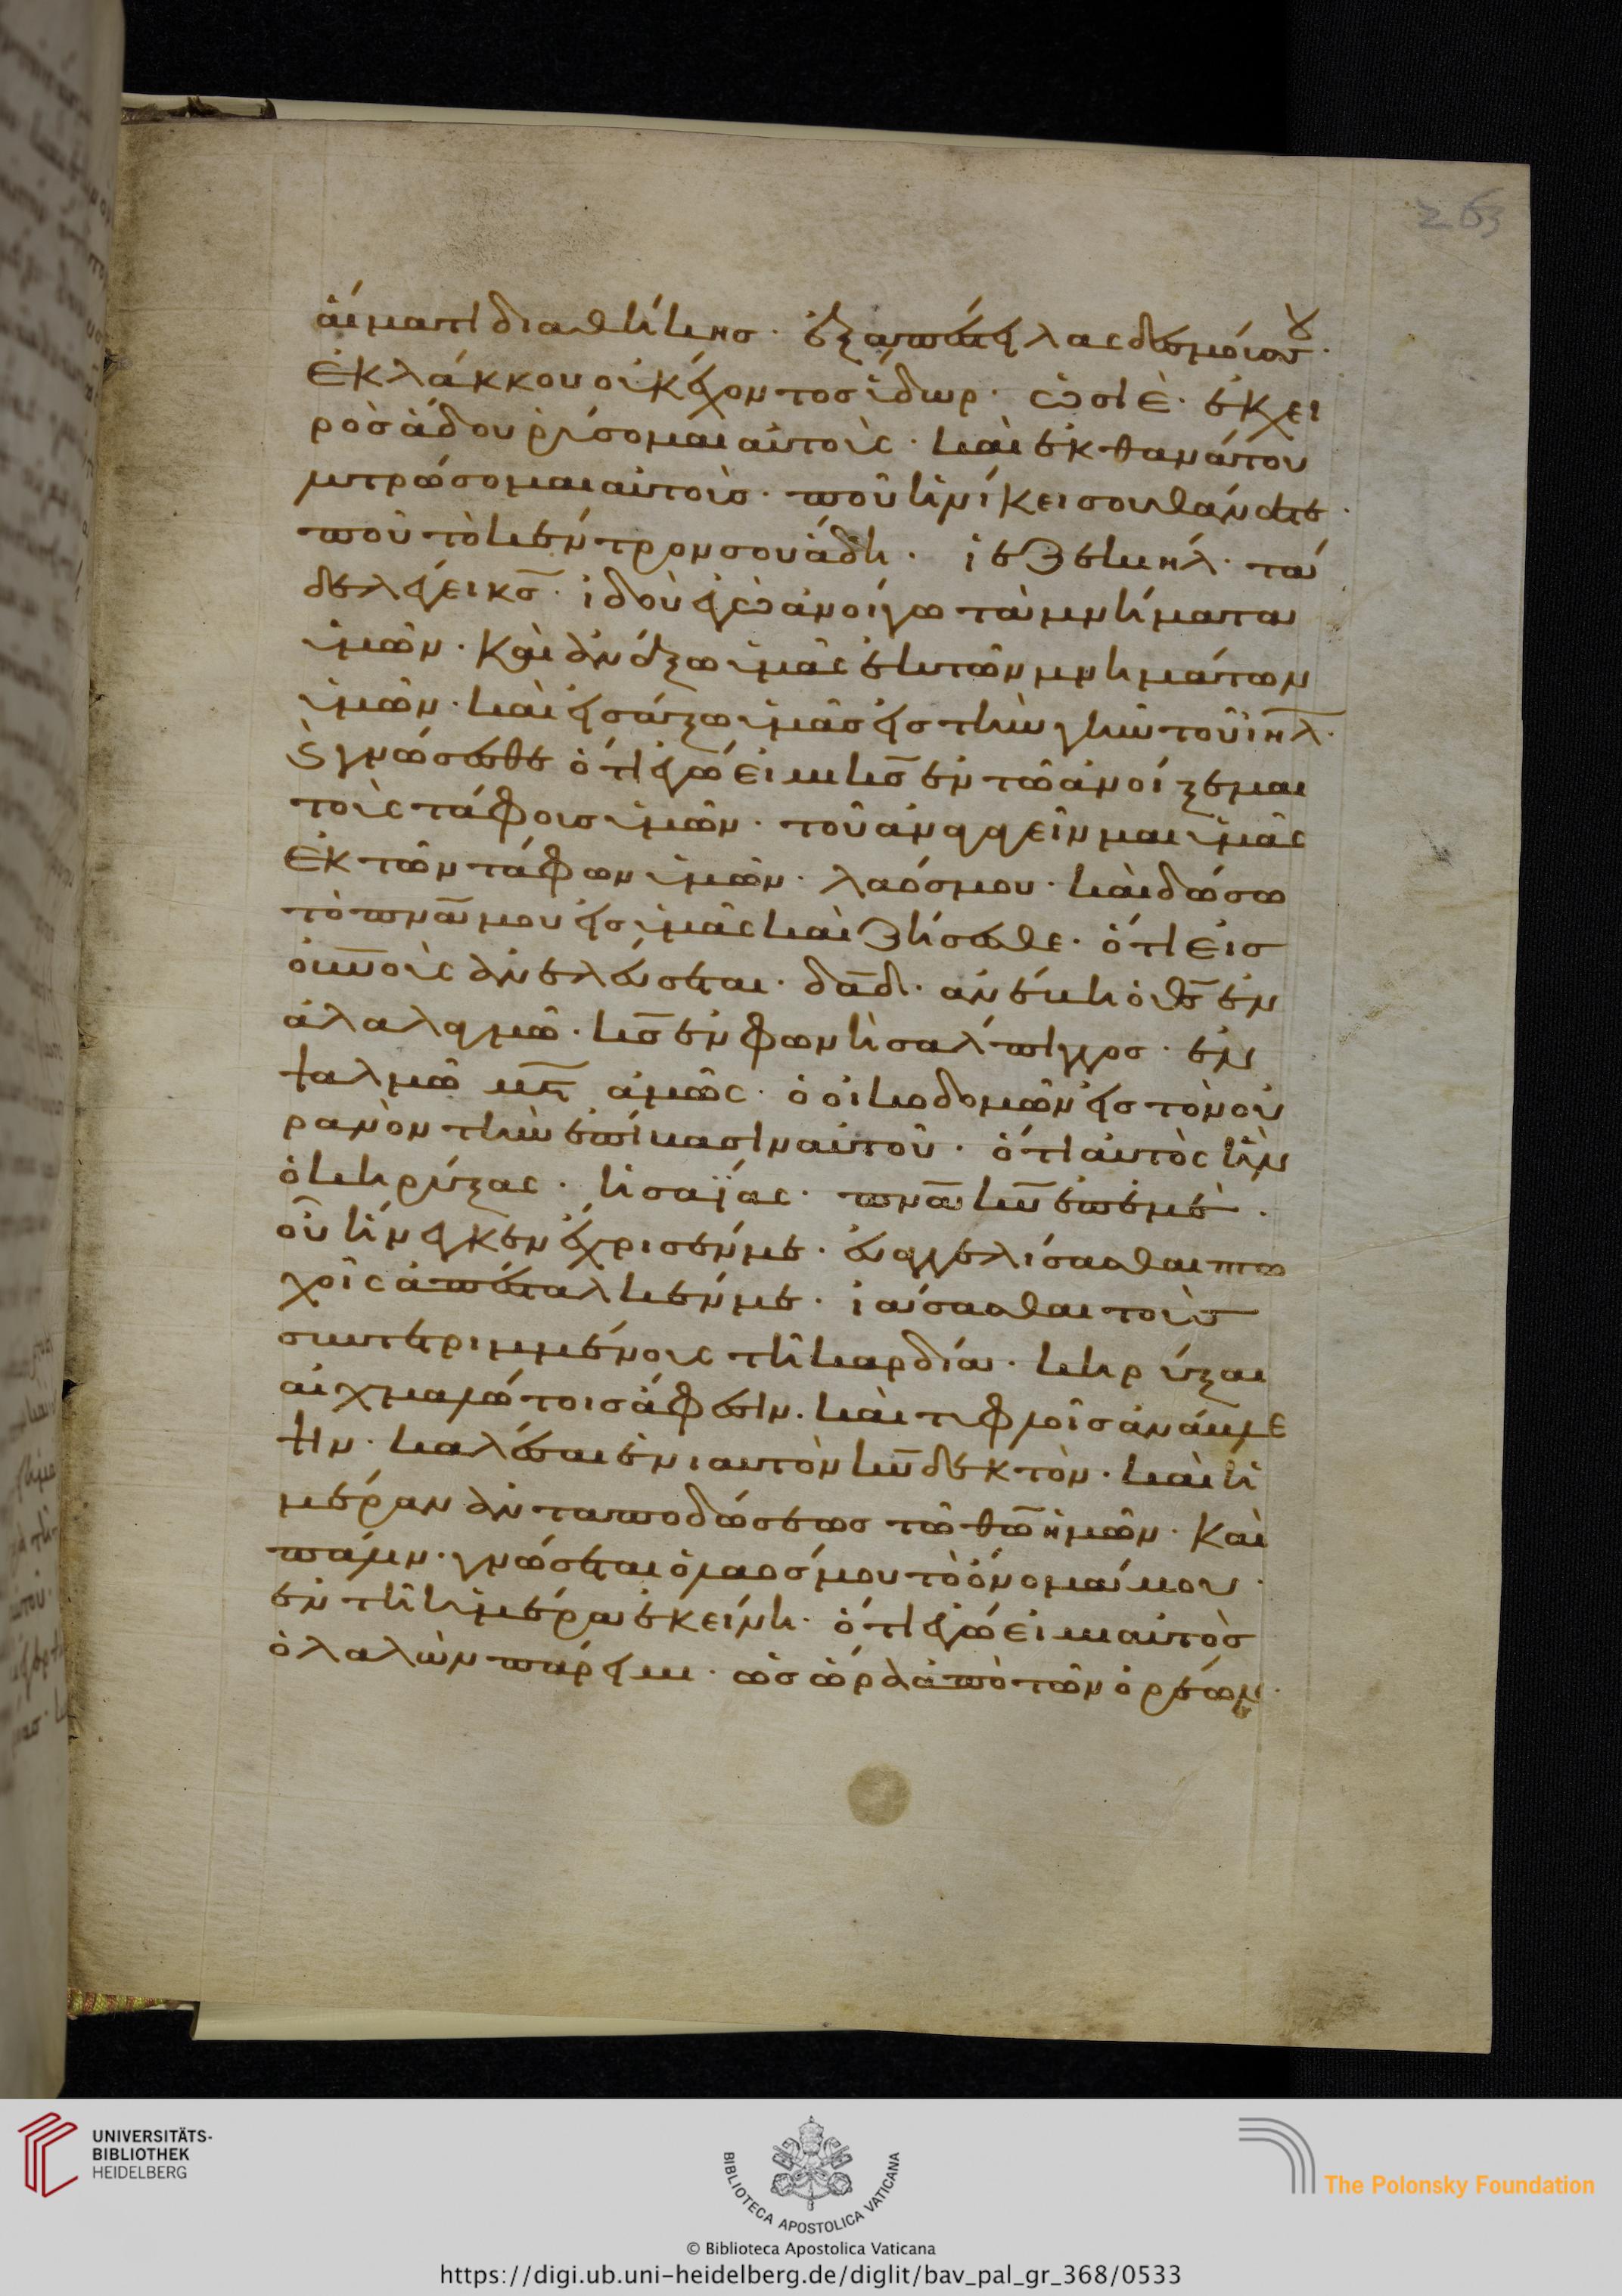 αἵματι διαθήκης· ἐξαπέστειλας δεσμίους σου·
ἐκ λάκκου οὐκ ἔχοντος ὕδωρ· ὡσιὲ· ἐκ χει
ρὸς ἅδου ῥύσομαι αὐτοὺς· καὶ ἐκ θανάτου
λυτρώσομαι αὐτοὺς· ποῦ ἡ νίκει σου θάνατε·
ποῦ τὸ κέντρον σου ἅδη· ἰεζεκιηλ· τά
δε λέγει κς· ἰδοὺ ἐγὼ ἀνοίγω τὰ μνήματα
ὑμῶν· καὶ ἀνάξω ὑμᾶς ἐκ τῶν μνημάτων
ὑμῶν· καὶ εἰσάξω ὑμᾶς εἰς τὴν γῆν τοῦ ιηλ·
ϛ γνώσεσθε ὅτι ἐγώ εἰμι κς ἐν τῶ ἀνοίξε μαι
τοὺς τάφους ὑμῶν· τοῦ ἀναγαγεῖν μαι ὑμᾶς
ἐκ τῶν τάφων ὑμῶν· λαός μου· καὶ δώσω
τὸ πνα μου εἰς ὑμᾶς καὶ ζήσεσθε· ὅτι εἰς
οὐνοὺς ἀνελεύσεται· δαδ· ἀνέβη ὁ θς ἐν
ἀλαλαγμῶ· κς ἐν φωνῆ σάλπιγγος· ἐν
ψαλμῶ ἀμὼς· ὁ οἰκοδομῶν εἰς τὸν οὐ
ρανὸν τὴν ἐπίβασιν αὐτοῦ· ὅτι αὐτὸς ἦν
ὁ κηρύξας· ἡσαΐας· πνα κυ ἐπ ἐμὲ·
οὗ εἵνεκεν ἔχρισέν με· εὐαγγελίσασθαι πτω
χοῖς ἀπέσταλκέν με· ἰάσασθαι τοὺς
συντετριμμένους τῆ καρδία· κηρύξαι
αἰχμαλώτοις ἄφεσιν· καὶ τυφλοῖς ἀνάβλε
ψιν· καλέσαι ἐνιαυτὸν κυ δεκτὸν· καὶ ἡ
μέραν ἀνταποδώσεως τῶ θω ἡμῶν· καὶ
πάλιν· γνώσεται ὁ λαός μου τὸ ὄνομά μου·
ἐν τῆ ἡμέρα ἐκείνη· ὅτι ἐγώ εἰμι αὐτὸς
ὁ λαλῶν πάρειμι· ὡς ὥρα ἀπὸ τῶν ὀρέων·
263
UNIVERSITÄTS-
BIBLIOTHEK
HEIDELBERG
BIBLIOTECA APOSTOLICA VATICANA
The Polonsky Foundation
© Biblioteca Apostolica Vaticana
https://digi.ub.uni-heidelberg.de/diglit/bav_pal_gr_368/0533